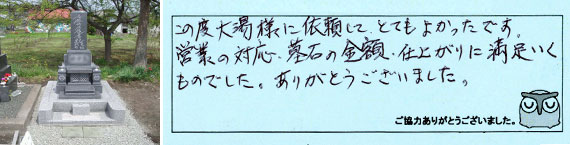 この度大湯様に依頼して、とてもよかったです。
営業の対応、墓石の金額、仕上がりに満足いく
ものでした。ありがとうございました。
ご協力ありがとうございました。